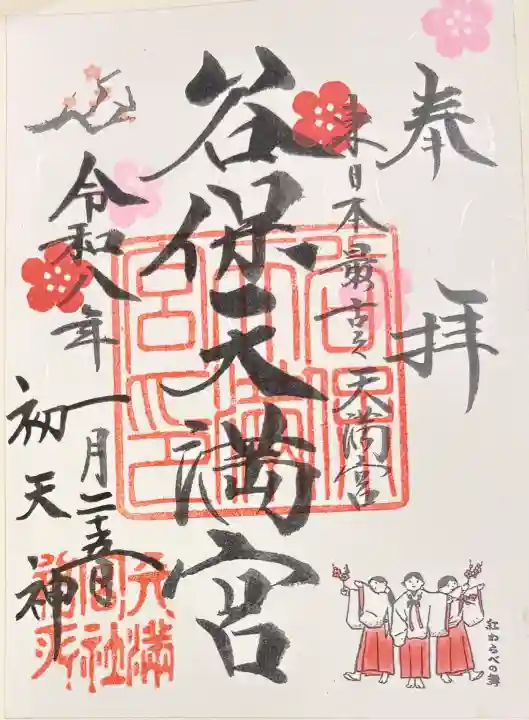 奉拝
東日本最古之天満宮
谷保天満宮
令和八年
一月二十五日
初天神
谷保天満宮印
紅わらべの舞